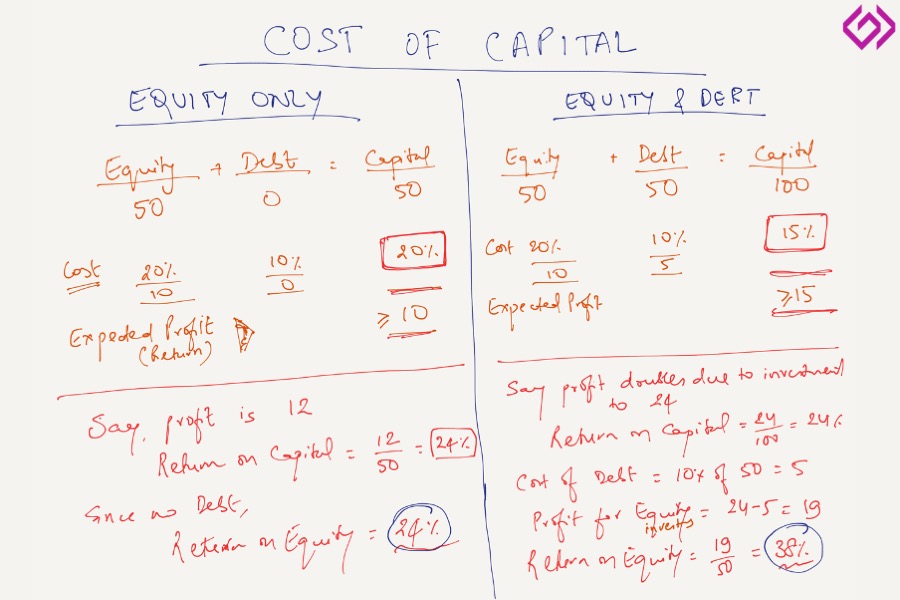 COST OF CAPITAL
EQUITY ONLY
Equity + Debt = Capital
50 0 50
Cost 20% 10% 20%
10 0
Expected Profit ≥ 10
(Return)
Say, profit is 12
Return on Capital = 12/50 = 24%
Since no Debt,
Return on Equity = 24%
EQUITY & DEBT
Equity + Debt = Capital
50 50 100
Cost 20% 10% 15%
10 5
Expected Profit ≥ 15
Say profit doubles due to investment
to 24
Return on Capital = 24/100 = 24%
Cost of Debt = 10% of 50 = 5
Profit for Equity = 24-5 = 19
investors
Return on Equity = 19/50 = 38%